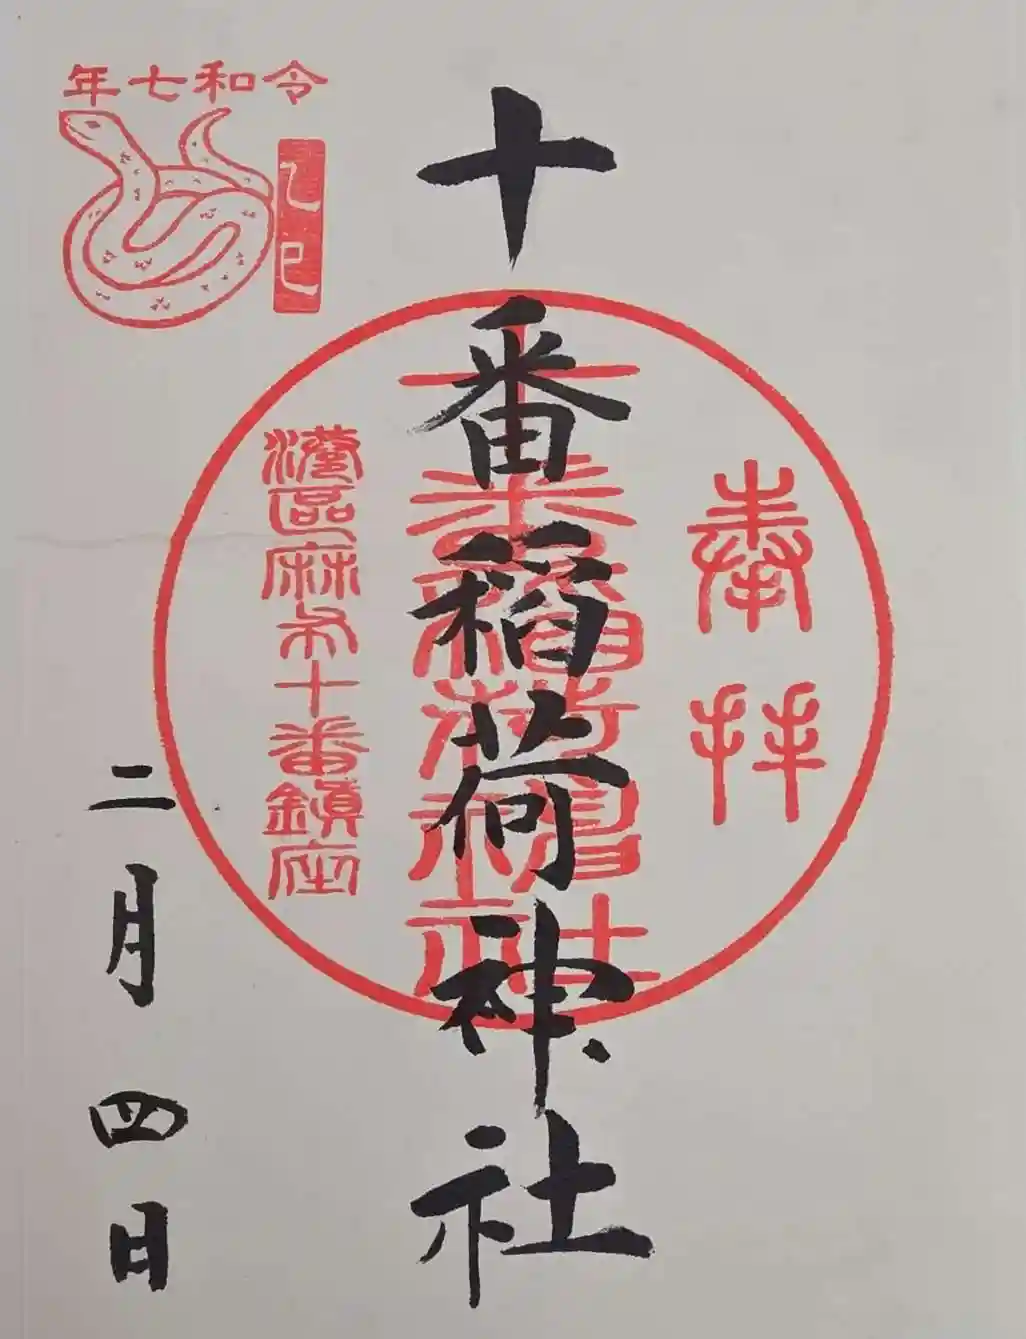 奉拝
十番稲荷神社
十番稲荷神社
港區麻布十番鎮座
令和七年
乙巳
二月四日